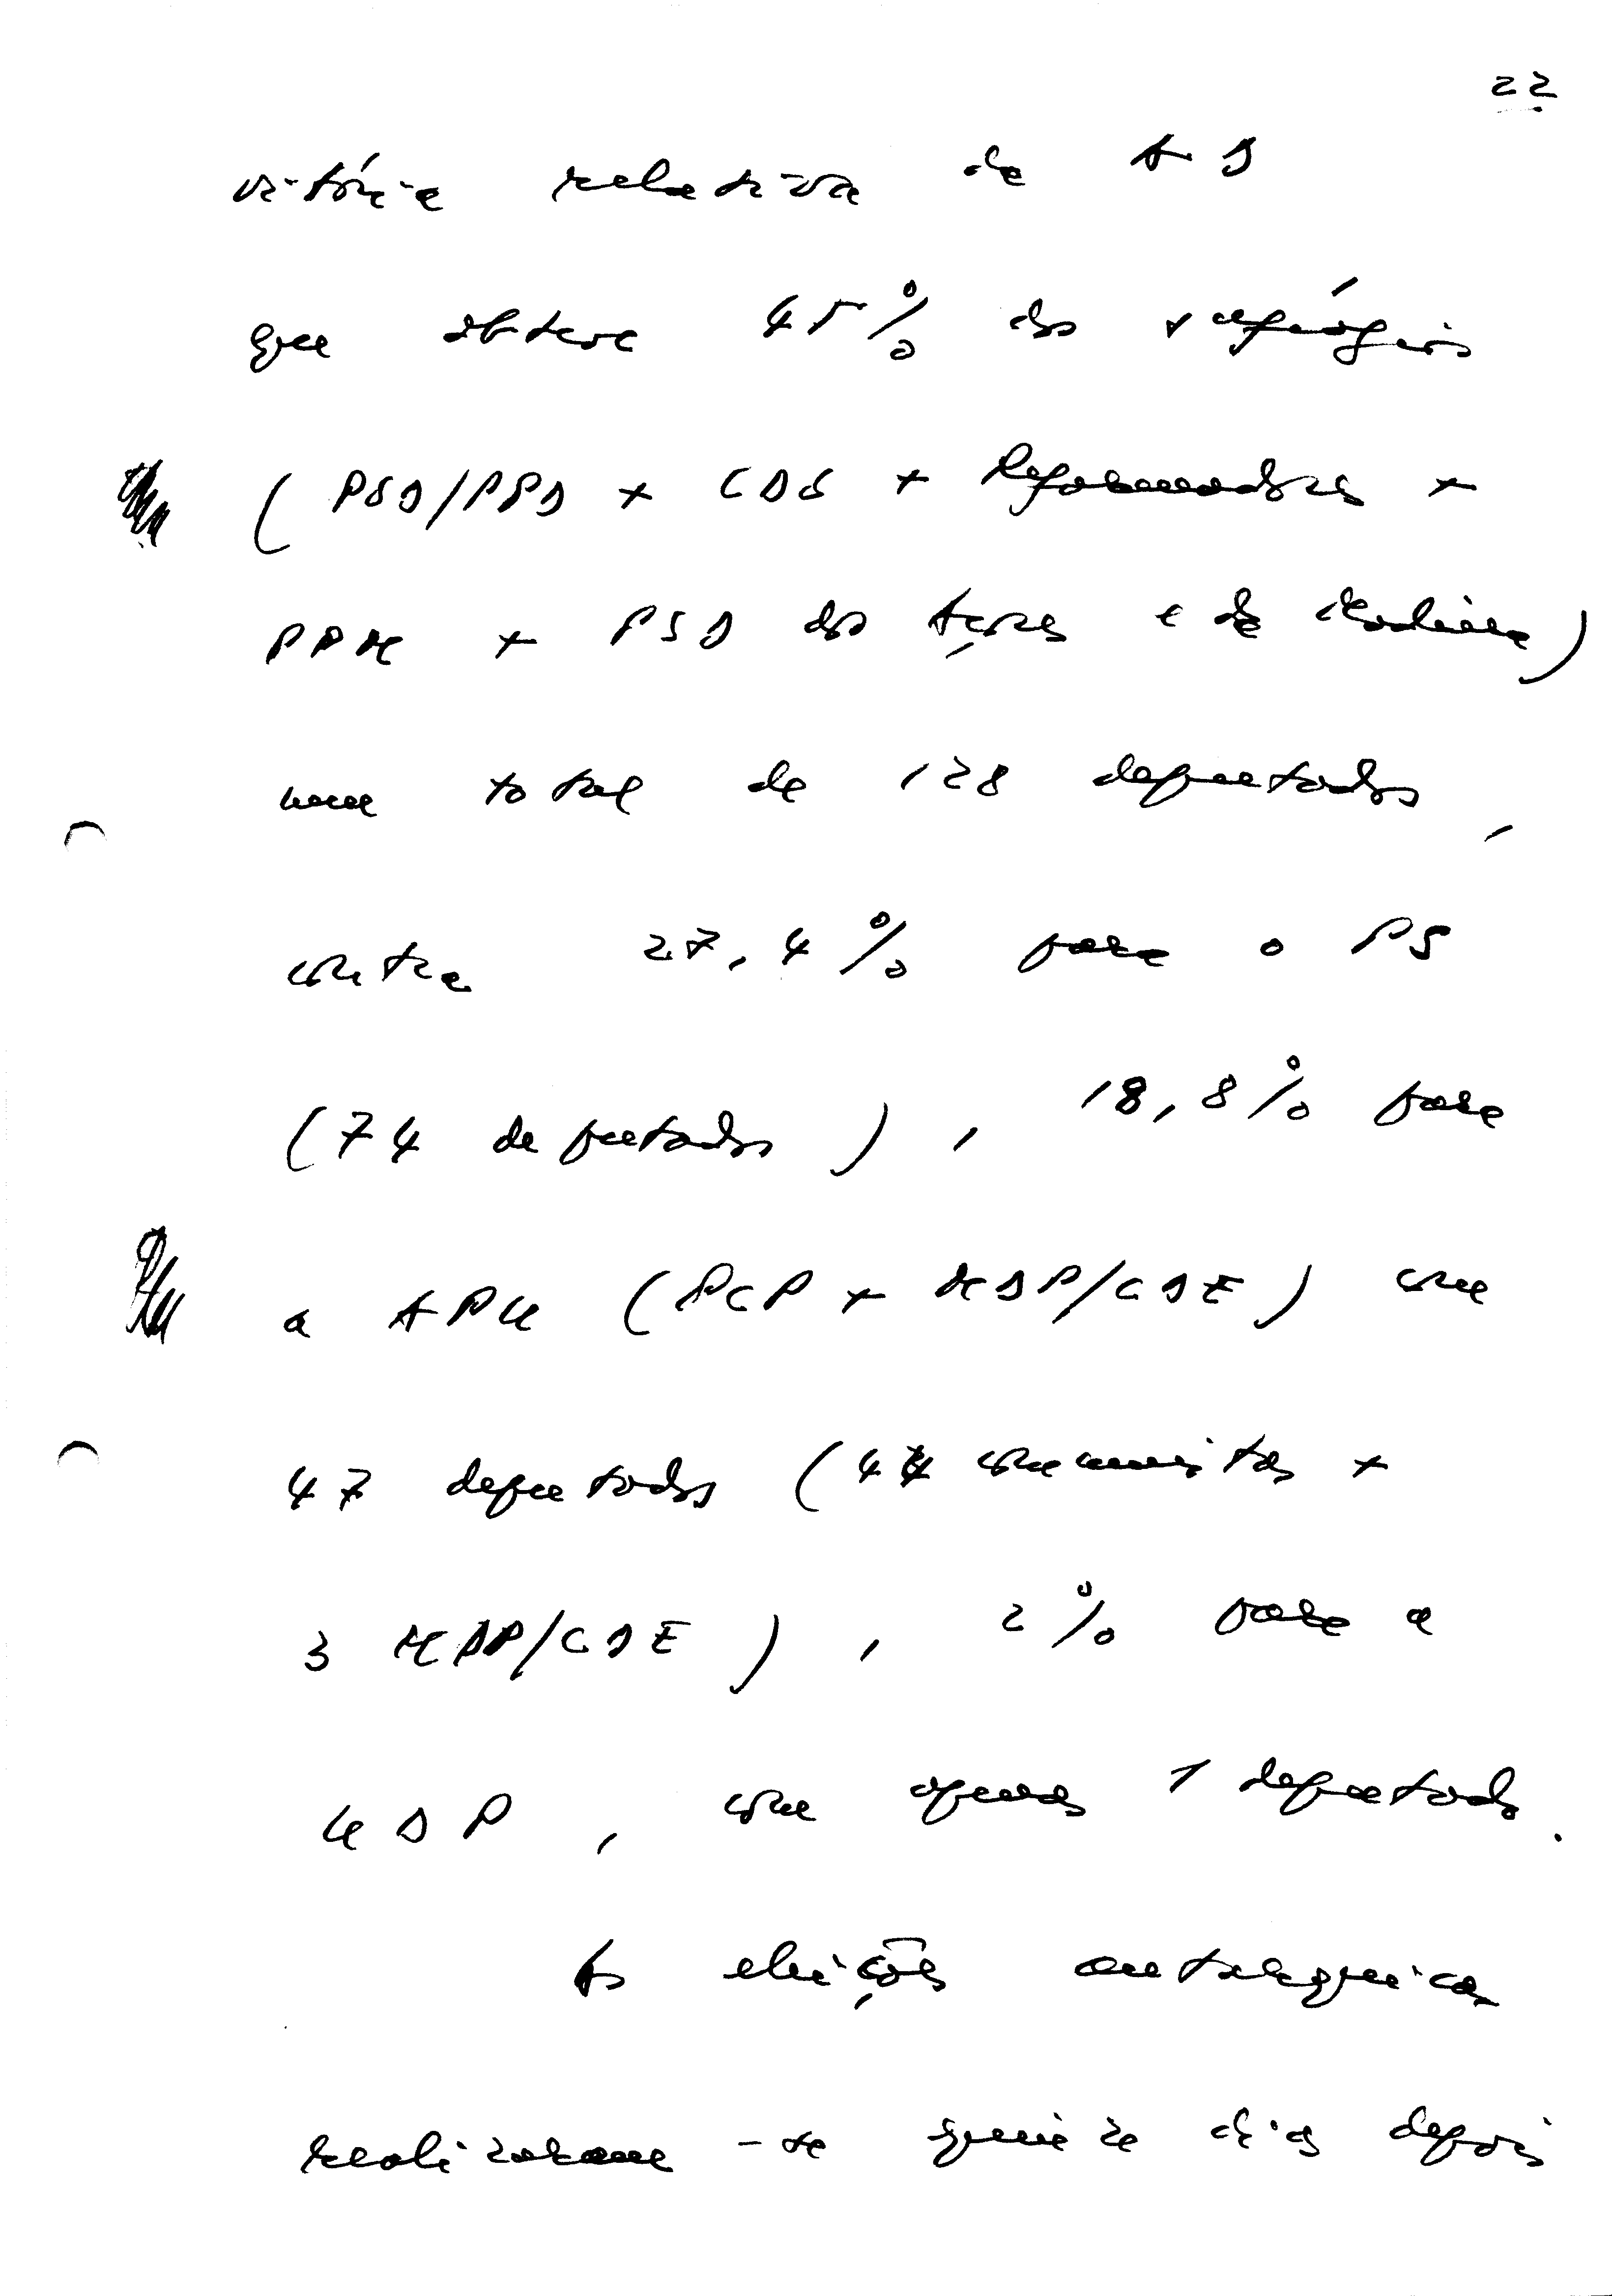 22
vitória relativa da AD
que obteve 45% dos sufrágios
(PSD/PPD + CDS + Reformadores +
PPM + PSD dos Açores e da Madeira)
num total de 128 deputados,
contra 27,4% para o PS
(74 deputados), 18,8% para
a APU (PCP + MDP/CDE) com
47 deputados (44 comunistas +
3 MDP/CDE), 2% para a
UDP, com apenas 1 deputado.
As eleições autárquicas
realizaram-se quinze dias depois